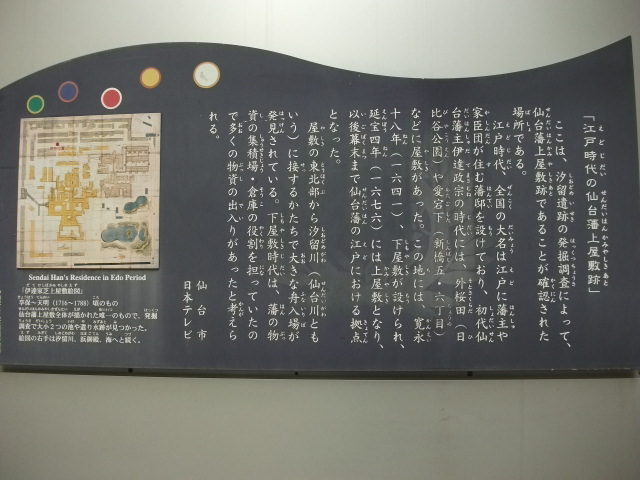 「江戸時代の仙台藩上屋敷跡」
ここは、汐留遺跡の発掘調査によって、
仙台藩上屋敷跡であることが確認された
場所である。
江戸時代、全国の大名は江戸に藩主や
家臣団が住む藩邸を設けており、初代仙
台藩主伊達政宗の時代には、外桜田（日
比谷公園）や愛宕下（新橋五・六丁目）
などに屋敷があった。この地には、寛永
十八年（一六四一）、下屋敷が設けられ、
延宝四年（一六七六）には上屋敷となり、
以後幕末まで仙台藩の江戸における拠点
となった。
屋敷の東北部から汐留川（仙台川とも
いう）に接するかたちで大きな舟入場が
発見されている。下屋敷時代は、藩の物
資の集積場・倉庫の役割を担っていたの
で多くの物資の出入りがあったと考えら
れる。
仙台市
日本テレビ
Sendai Han's Residence in Edo Period
「伊達家芝上屋敷絵図」
享保〜天明（1716〜1788）頃のもの
仙台藩上屋敷全体が描かれた唯一のもので、発掘
調査で大小2つの池や遣り水跡が見つかった。
絵図の右手は汐留川、浜御殿、海へと続く。